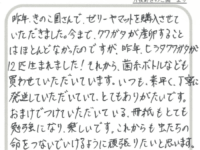 昨年、きのこ園さんで、ゼリーやマットを購入させて
いただきました。今まで、クワガタが産卵すること
はほとんどなかったのですが、昨年、ヒラタクワガタが
12匹生まれました!それから、菌糸ボトルなども
買わせていただいています。いつも、手早く、丁寧に
発送していただいていて、とてもありがたいです。
おまけでつけていただいている、冊紙もとても
勉強になり、楽しいです。これからも虫たちの
命をつないでいけるように頑張りたいと思います。